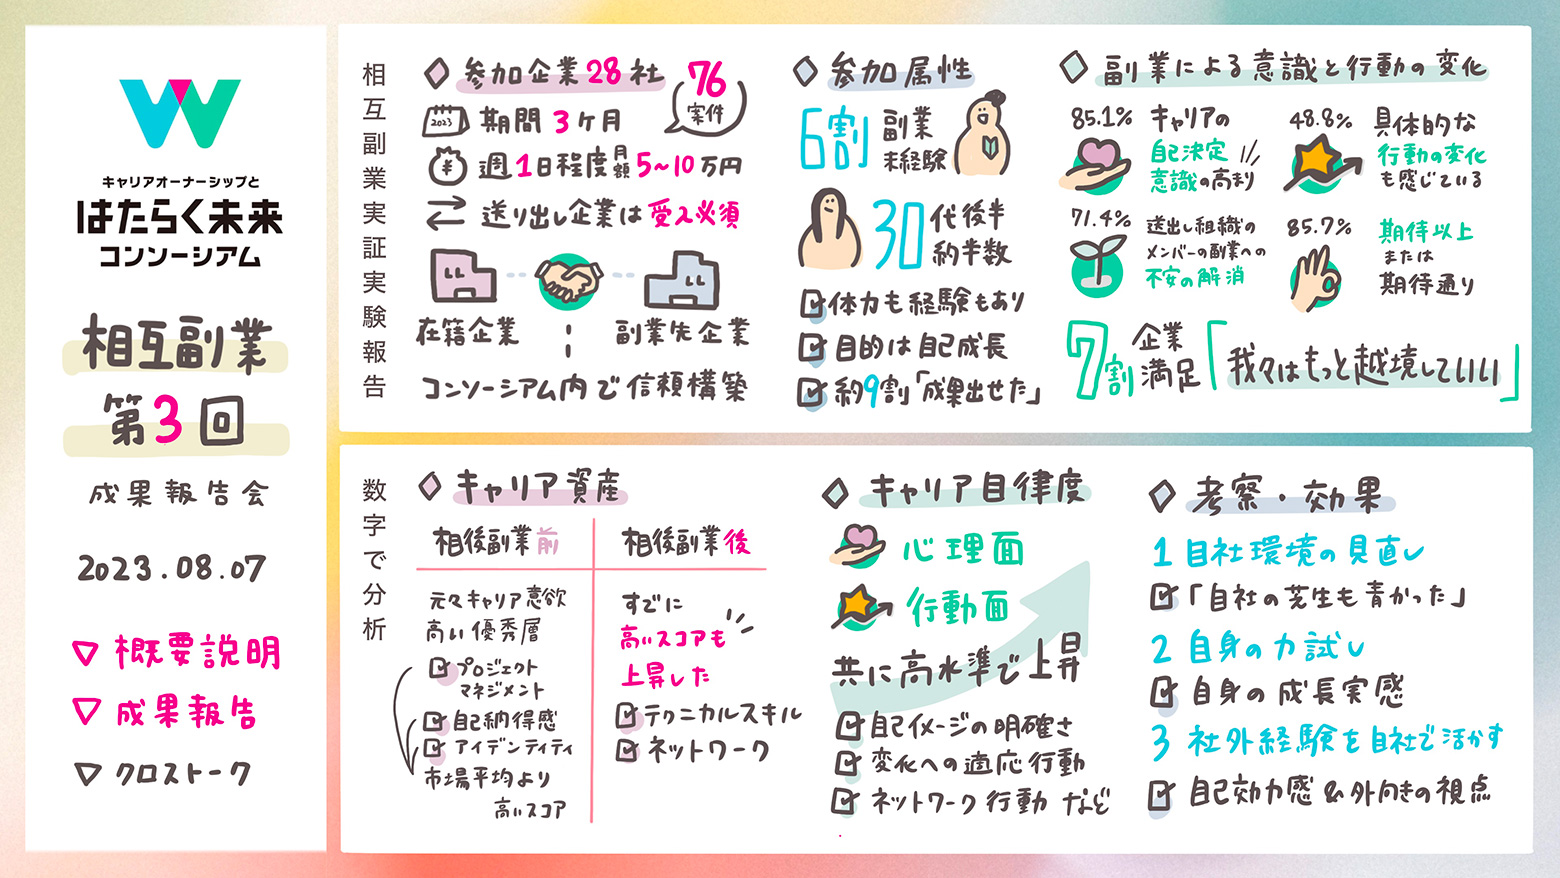 キャリアオーナーシップと
はたらく未来
コンソーシアム
相互副業
第3回
成果報告会
2023.08.07
▽ 概要説明
▽ 成果報告
▽ クロストーク
相互副業実証実験報告
◇ 参加企業28社
76
案件
2023
期間 3ヶ月
¥
週1日程度月額5〜10万円
送り出し企業は受入必須
在籍企業
副業先企業
コンソーシアム内で信頼構築
◇ 参加属性
6割 副業
未経験
30代後半
約半数
体力も経験もあり
目的は自己成長
約9割「成果出せた」
◇ 副業による意識と行動の変化
85.1%
キャリアの
自己決定
意識の高まり
48.8%
具体的な
行動の変化
も感じている
71.4%
送出し組織の
メンバーの副業への
不安の解消
85.7%
期待以上
または
期待通り
7割
企業
満足
「我々はもっと越境していい」
数字で分析
◇ キャリア資産
相後副業前
元々キャリア意欲
高い優秀層
プロジェクト
マネジメント
自己納得感
アイデンティティ
市場平均より
高いスコア
相後副業後
すでに
高いスコアも
上昇した
テクニカルスキル
ネットワーク
◇ キャリア自律度
心理面
行動面
共に高水準で上昇
自己イメージの明確さ
変化への適応行動
ネットワーク行動 など
◇ 考察・効果
1 自社環境の見直し
「自社の芝生も青かった」
2 自身の力試し
自身の成長実感
3 社外経験を自社で活かす
自己効力感&外向きの視点